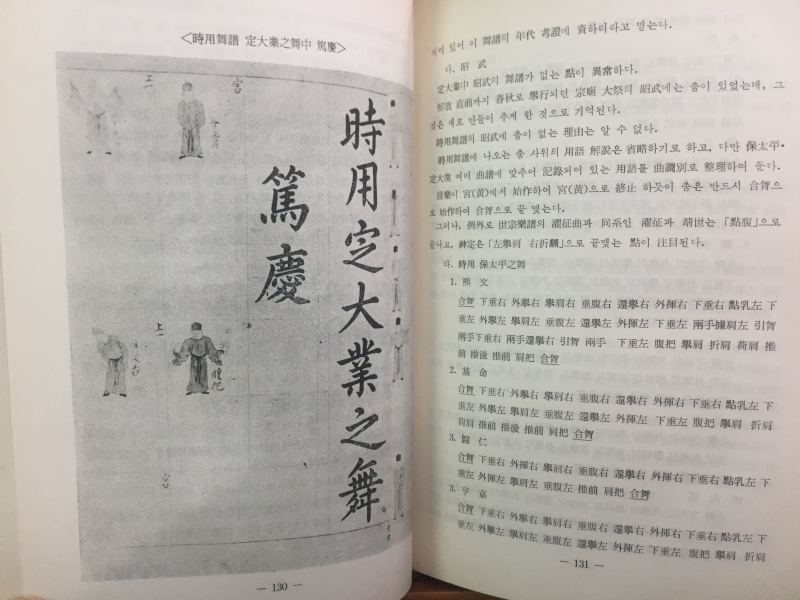 <時用舞譜 定大業之舞中 篤慶>
時用定大業之舞
篤慶
宮
上二
上一
— 130 —
되어 있어 이 舞譜의 年代 考證에 資하리라고 믿는다.
다. 昭 武
定大業中 昭武의 舞譜가 없는 點이 異常하다.
解放 直前까지 春秋로 擧行되던 宗廟 大祭의 昭武에는 춤이 있었는데, 그
것은 새로 만들어 추게 한 것으로 기억된다.
時用舞譜의 昭武에 춤이 없는 理由는 알 수 없다.
時用舞譜에 나오는 춤 사위의 用語 解說은 省略하기로 하고, 다만 保太平·
定大業 여러 曲譜에 맞추어 記錄되어 있는 用語를 曲調別로 整理하여 둔다.
音樂이 宮(黃)에서 始作하여 宮(黃)으로 終止 하듯이 춤은 반드시 合胷으
로 始作하여 合胷으로 끝 맺는다.
그러나, 例外로 世宗樂譜의 濯征曲과 同系인 濯征과 靖世는 「點腹」으로
끝나고, 神定은 「左擧肩 右折願」으로 끝맺는 點이 注目된다.
라. 時用 保太平之舞
1. 熙 文
合胷 下垂右 外擧右 擧肩右 垂腹右 還擧右 外揮右 下垂右 點乳左 下
垂左 外擧左 擧肩左 垂腹左 還擧左 外揮左 下垂左 兩手據肩左 引胷
兩手下垂右 兩手還擧右 引胷 兩手 下垂左 腹把 擧肩 折肩 荷肩 推
前 推後 推前 肩把 合胷
2. 基 命
合胷 下垂右 外擧右 擧肩右 垂腹右 還擧右 外揮右 下垂右 點乳左 下
垂左 外擧左 擧肩左 垂腹左 還擧左 外揮左 下垂左 腹把 擧肩 折肩
荷肩 推前 推後 推前 肩把 合胷
3. 歸 仁
合胷 下垂右 外擧右 擧肩右 垂腹右 還擧右 外揮右 下垂右 點乳左 下
垂左 外揮左 擧肩左 垂腹左 推前 肩把 合胷
3. 亨 嘉
合胷 下垂右 外擧右 擧肩右 垂腹右 還擧右 外揮右 下垂右 點乳左 下
垂左 外擧左 擧肩左 垂腹左 還擧左 外揮左 下垂左 腹把 擧肩 折肩
— 131 —